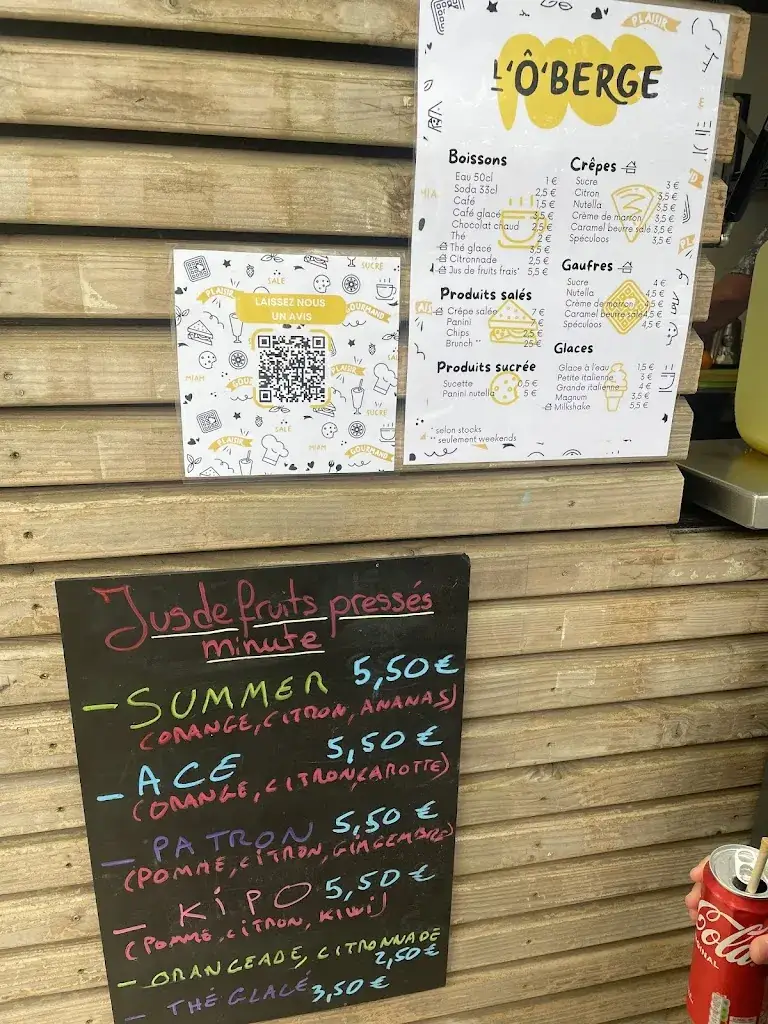 PLAISIR
L'Ô'BERGE
Boissons
Eau 50cl 1 €
Soda 33cl 2,5 €
Café 1,5 €
Café glacé 3,5 €
Chocolat chaud 2,5 €
Thé 2 €
Thé glacé 3,5 €
Citronnade 2,5 €
Jus de fruits frais* 5,5 €
Produits salés
Crêpe salée 7 €
Panini 7 €
Chips 2,5 €
Brunch ** 25 €
Produits sucrée
Sucette 0,5 €
Panini nutella 5 €
* selon stocks
** seulement weekends
Crêpes
Sucre 3 €
Citron 3,5 €
Nutella 3,5 €
Crème de marron 3,5 €
Caramel beurre salé 3,5 €
Spéculoos 3,5 €
Gaufres
Sucre 4 €
Nutella 4,5 €
Crème de marron 4,5 €
Caramel beurre salé 4,5 €
Spéculoos 4,5 €
Glaces
Glace à l'eau 1,5 €
Petite italienne 3 €
Grande italienne 4 €
Magnum 3,5 €
Milkshake 5,5 €
SUCRE
SALE
PLAISIR
LAISSEZ NOUS
UN AVIS
GOURMAND
MIAM
PLAISIR
SUCRE
PLAISIR
SALE
MIAM
GOURMAND
Jus de fruits pressés
minute
- SUMMER 5,50 €
(ORANGE, CITRON, ANANAS)
- ACE 5,50 €
(ORANGE, CITRON, CAROTTE)
- PATRON 5,50 €
(POMME, CITRON, GINGEMBRE)
- KIPO 5,50 €
(POMME, CITRON, KIWI)
- ORANGEADE, CITRONNADE
2,50 €
- THÉ GLACÉ 3,50 €